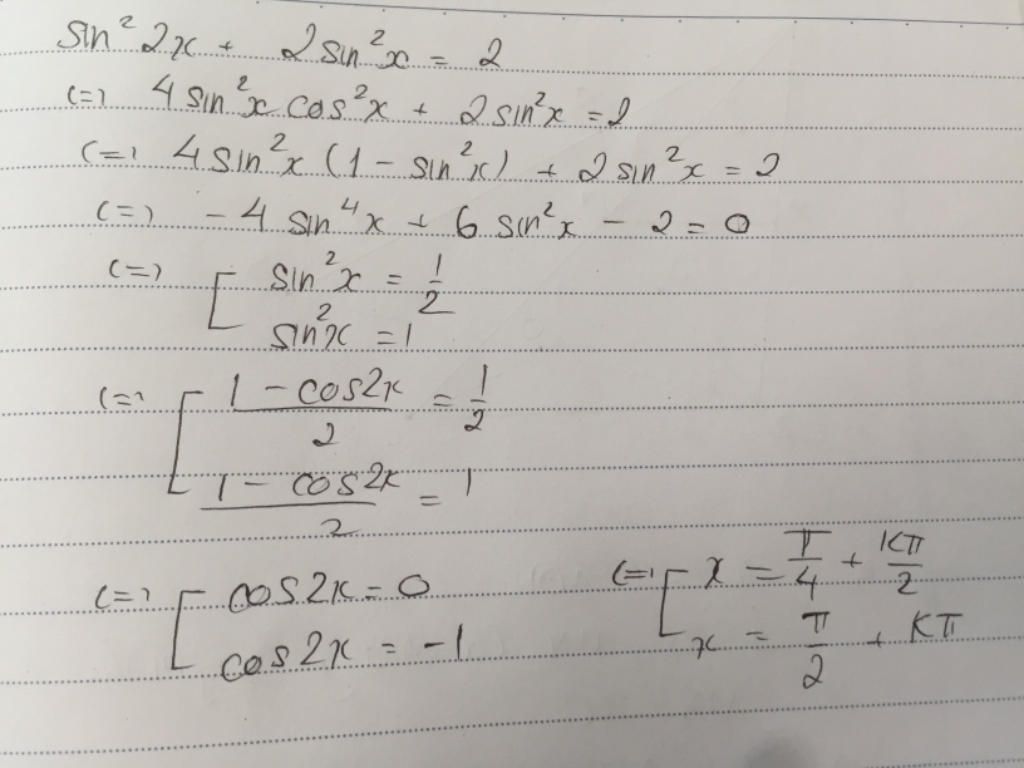 sin² 2x + 2 sin² x = 2
(=) 4 sin² x cos² x + 2 sin² x = 2
(=) 4 sin² x (1 - sin² x) + 2 sin² x = 2
(=) - 4 sin⁴ x + 6 sin² x - 2 = 0
(=) [ sin² x = 1/2
sin² x = 1
(=) [ (1 - cos2x)/2 = 1/2
(1 - cos2x)/2 = 1
(=) [ cos2x = 0
cos2x = -1
(=) [ x = π/4 + kπ/2
x = π/2 + kπ